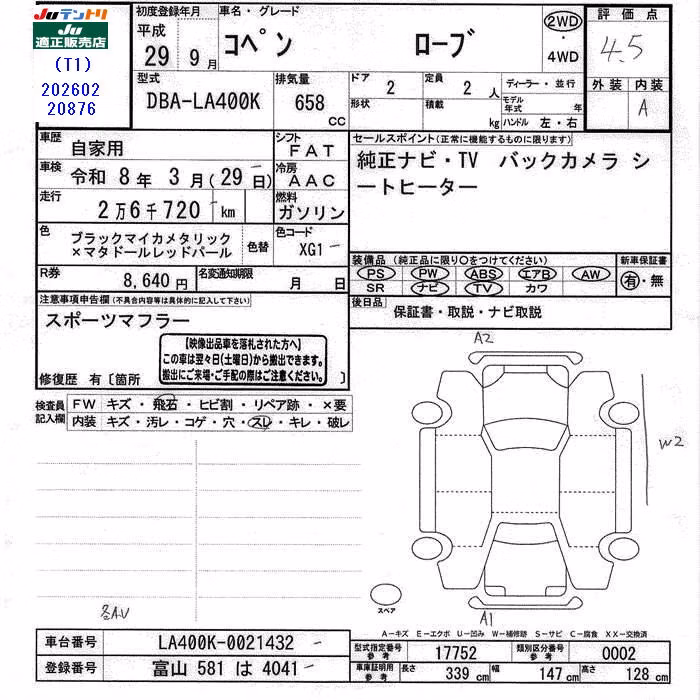 Juテントリ
Ju
適正販売店
(T1)
202602
20876
初度登録年月
平成
29年9月
車名・グレード
コペン ローブ
2WD
・
4WD
評価点
4.5
外装 内装
A
型式
DBA-LA400K
排気量
658
cc
ドア
2
定員
2人
形状
積載
kg
ディーラー・並行
モデル年式 年
ハンドル 左・右
車歴
自家用
シフト
FAT
車検
令和 8年 3月(29日)
冷房
AAC
走行
2万6千720 km
燃料
ガソリン
色
ブラックマイカメタリック
×マタドールレッドパール
色替
色コード
XG1
R券
8,640円
名変通知期限
月 日
セールスポイント(正常に機能するものに限ります)
純正ナビ・TV バックカメラ シ
ートヒーター
装備品 (純正品に限り○をつけてください)
PS PW ABS エアB AW
SR ナビ TV カワ
新車保証書
有・無
後日品
保証書・取説・ナビ取説
注意事項申告欄(不具合内容等は具体的に記入して下さい)
スポーツマフラー
【映像出品車を落札された方へ】
この車は翌々日(土曜日)から搬出できます。
搬出にご来場・ご手配の際はご注意ください。
修復歴 有〔箇所 〕
検査員
記入欄
FW キズ・飛石・ヒビ割・リペア跡・×要
内装 キズ・汚レ・コゲ・穴・スレ・キレ・破レ
A2
W2
A1
各A.U
スペア
A－キズ E－エクボ U－凹み W－補修跡 S－サビ C－腐食 XX－交換済
車台番号
LA400K-0021432
登録番号
富山 581 は 4041
型式指定番号
参考
17752
類別区分番号
参考
0002
車庫証明用
参考
長さ 339cm 幅 147cm 高さ 128cm